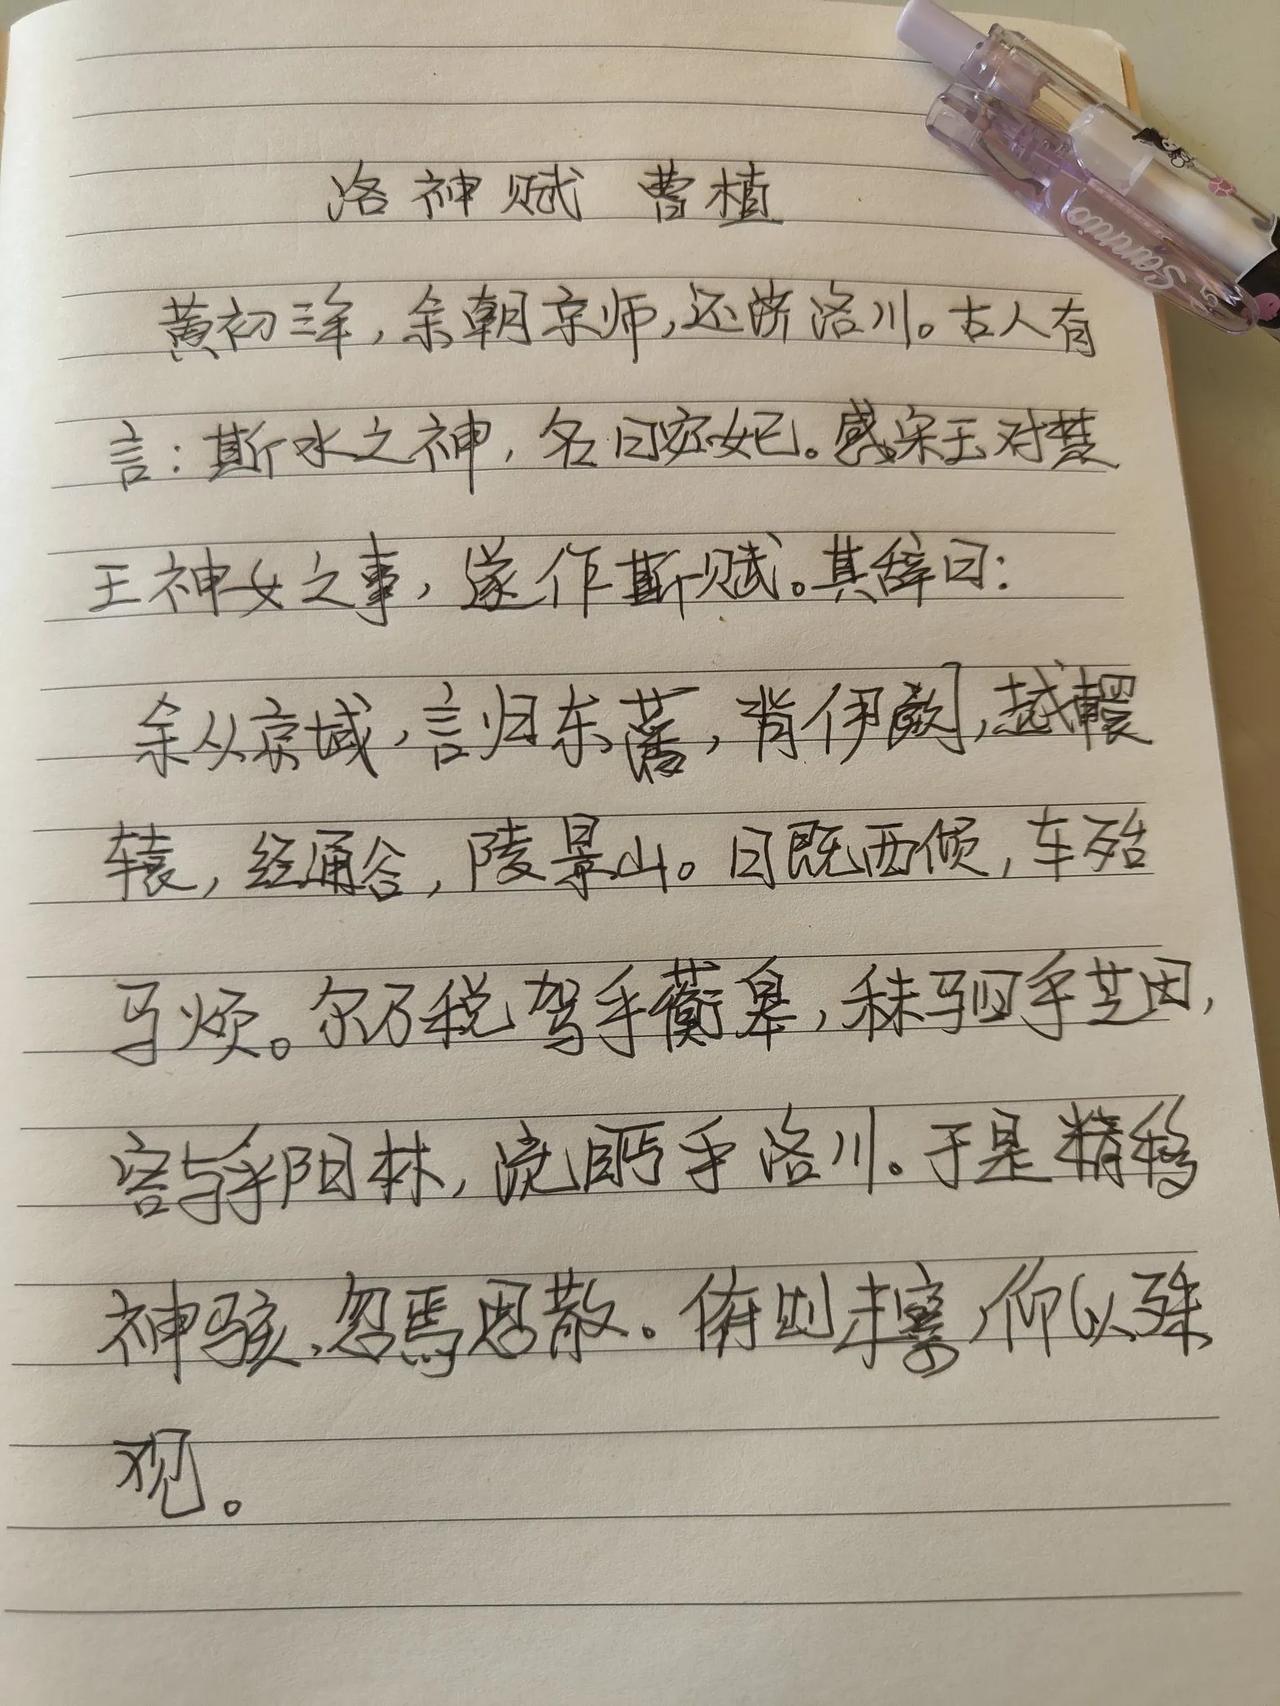 洛神赋 曹植
黄初三年,余朝京师,还济洛川。古人有
言:斯水之神,名曰宓妃。感宋玉对楚
王神女之事,遂作斯赋。其辞曰:
余从京域,言归东藩,背伊阙,越轘
辕,经通谷,陵景山。日既西倾,车殆
马烦。尔乃税驾乎蘅皋,秣驷乎芝田,
容与乎阳林,流眄乎洛川。于是精移
神骇,忽焉思散。俯则未察,仰以殊
观。
Sanrio